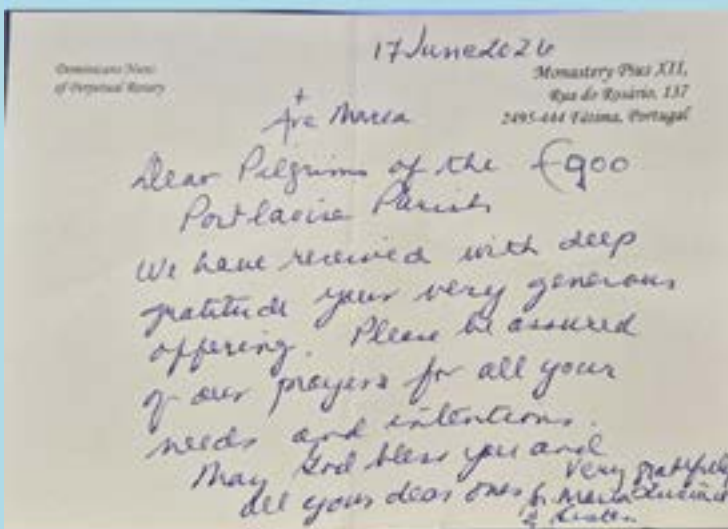 17 June 2026
Dominicans Nuns
of Perpetual Rosary
Monastery Pius XII,
Rua do Rosário, 137
2495-444 Fátima, Portugal
+
Ave Maria
Dear Pilgrims of the €900
Portlaoise Parish
We have received with deep
gratitude your very generous
offering. Please be assured
of our prayers for all your
needs and intentions.
May God bless you and
all your dear ones
Very gratefully
Sr. Maria
& Sisters